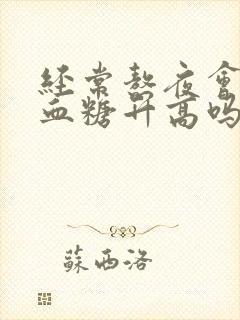 經常熬夜會
血糖升高嗎
蘇西洛